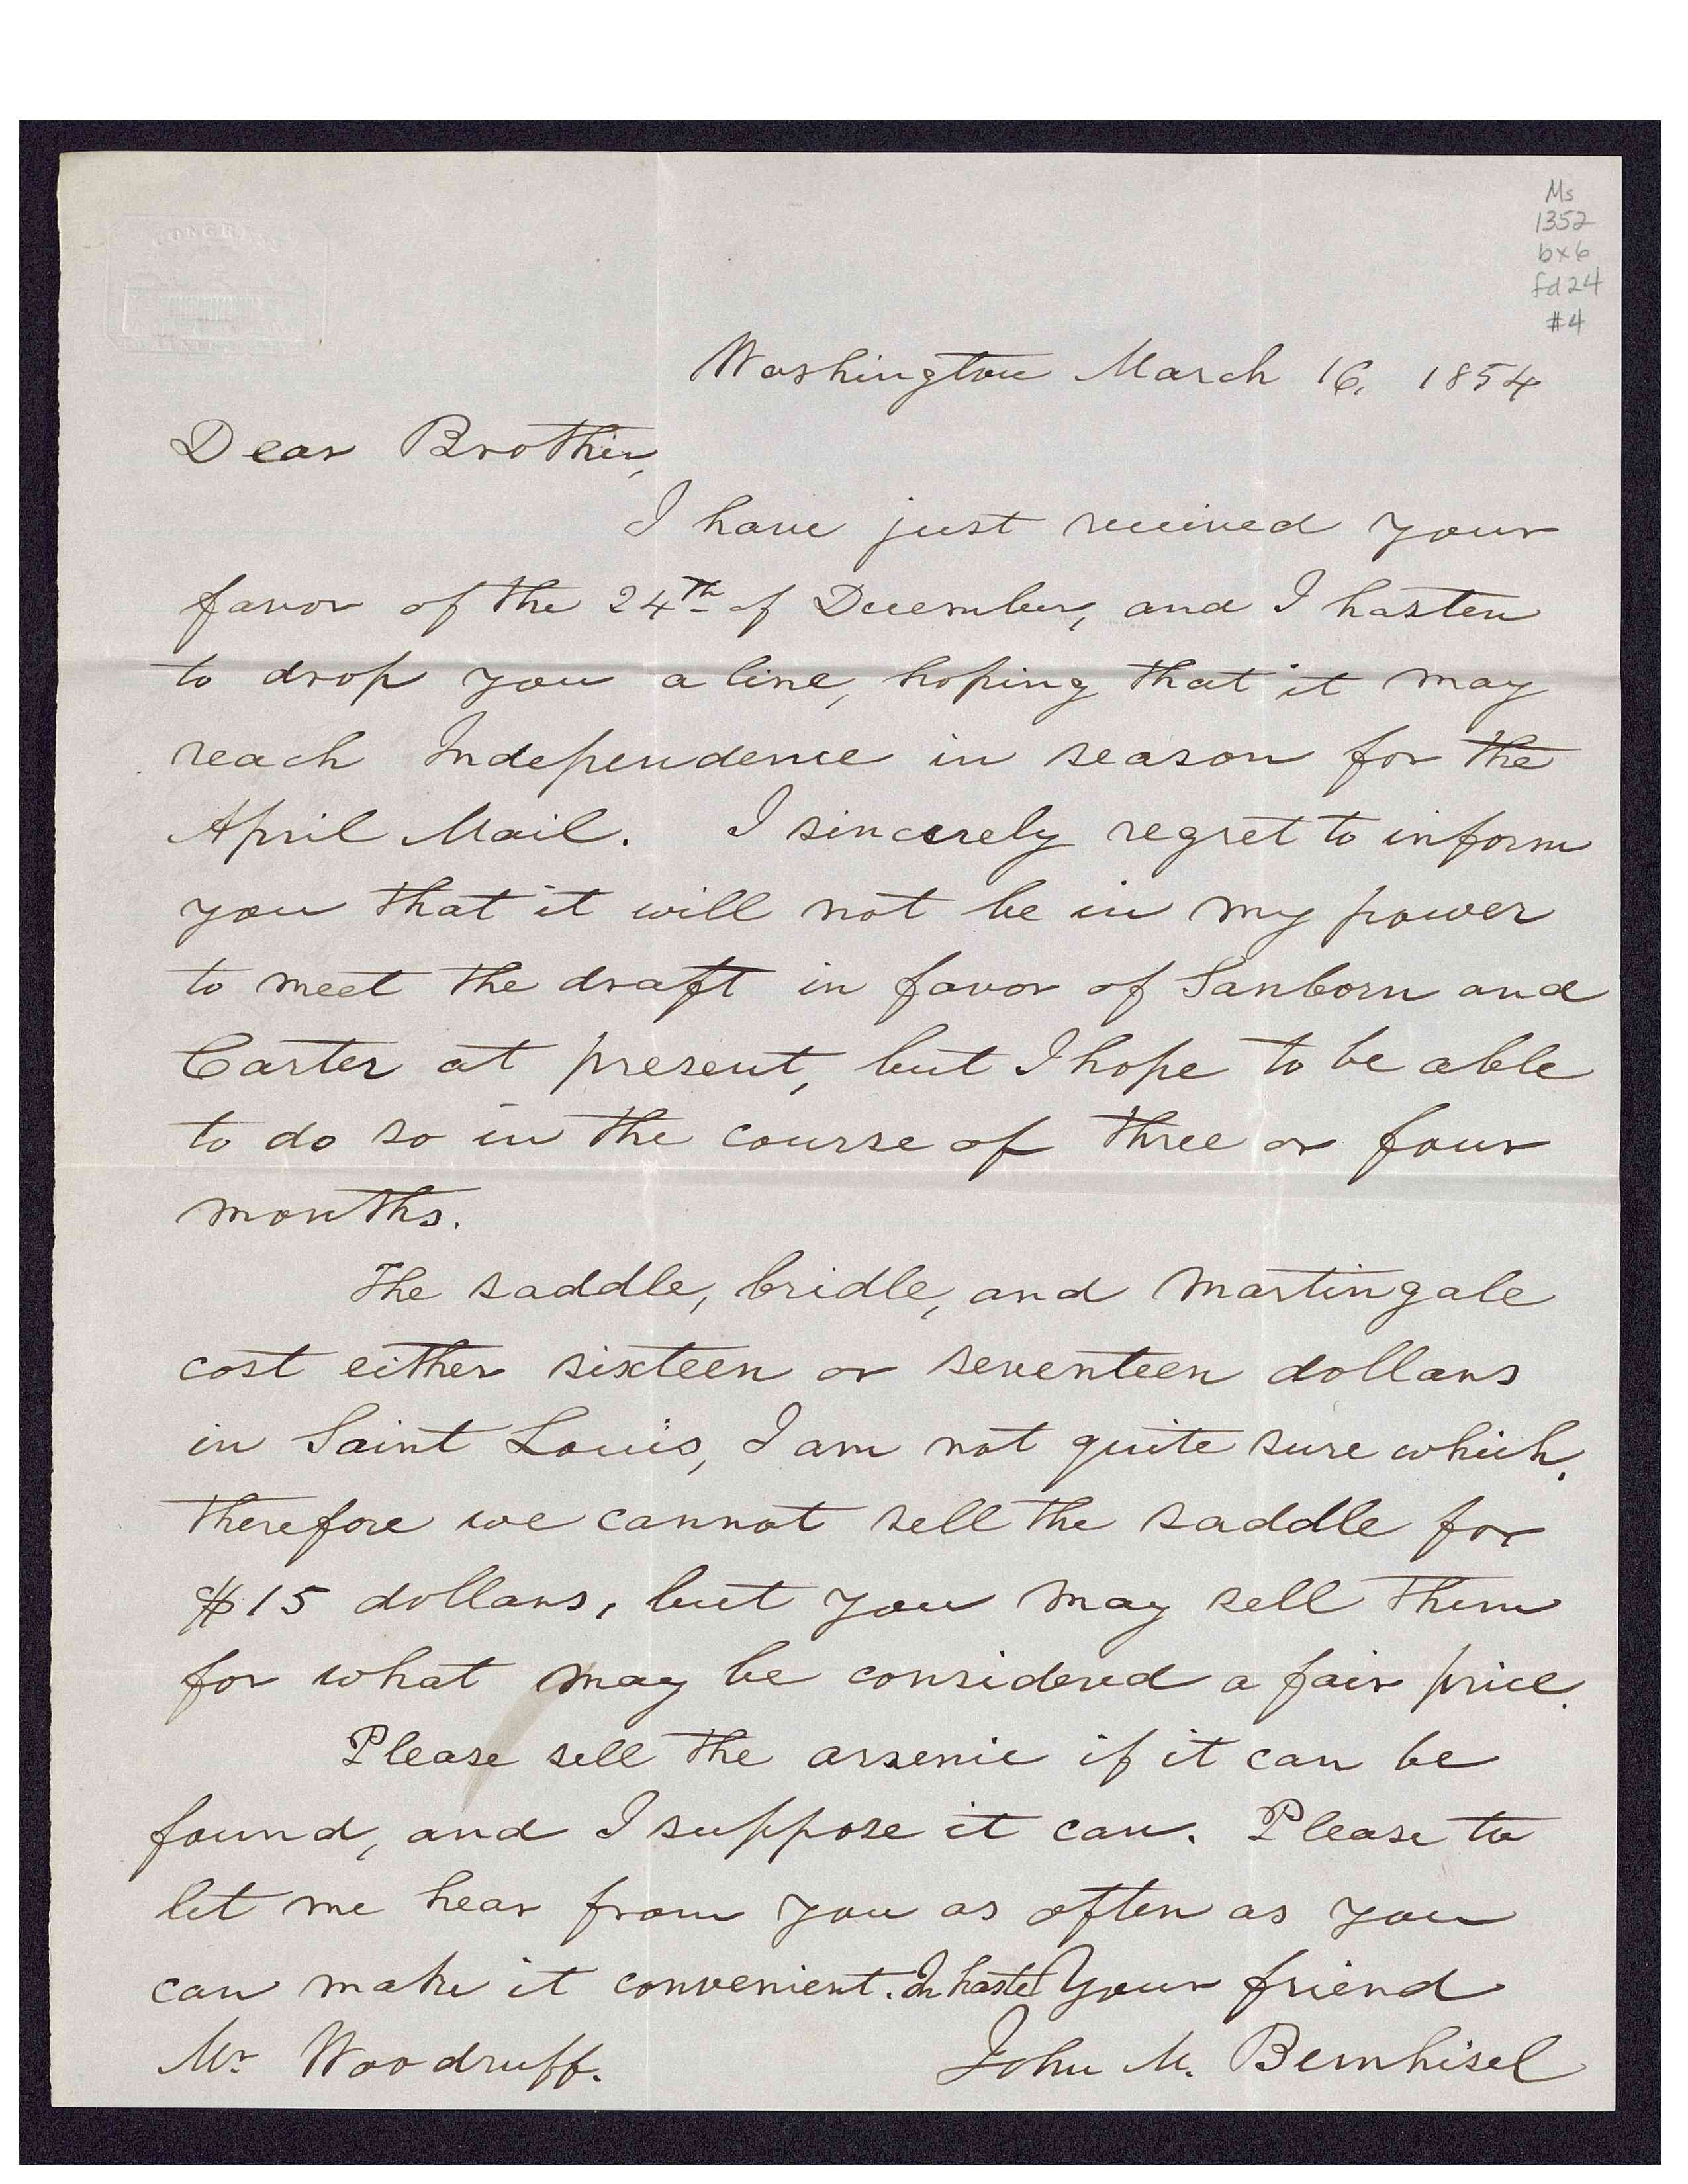 Ms
1352
bx6
fd24
#4
Washington March 16, 1854
Dear Brother,
I have just received your
favor of the 24th of December, and I hasten
to drop you a line, hoping that it may
reach Independence in season for the
April Mail. I sincerely regret to inform
you that it will not be in my power
to meet the draft in favor of Sanborn and
Carter at present, but I hope to be able
to do so in the course of three or four
months.
The saddle, bridle, and martingale
cost either sixteen or seventeen dollars
in Saint Louis, I am not quite sure which,
therefore we cannot sell the saddle for
$15 dollars, but you may sell them
for what may be considered a fair price.
Please sell the arsenic if it can be
found, and I suppose it can. Please to
let me hear from you as often as you
can make it convenient. In haste Your friend
Mr Woodruff. John M. Bernhisel